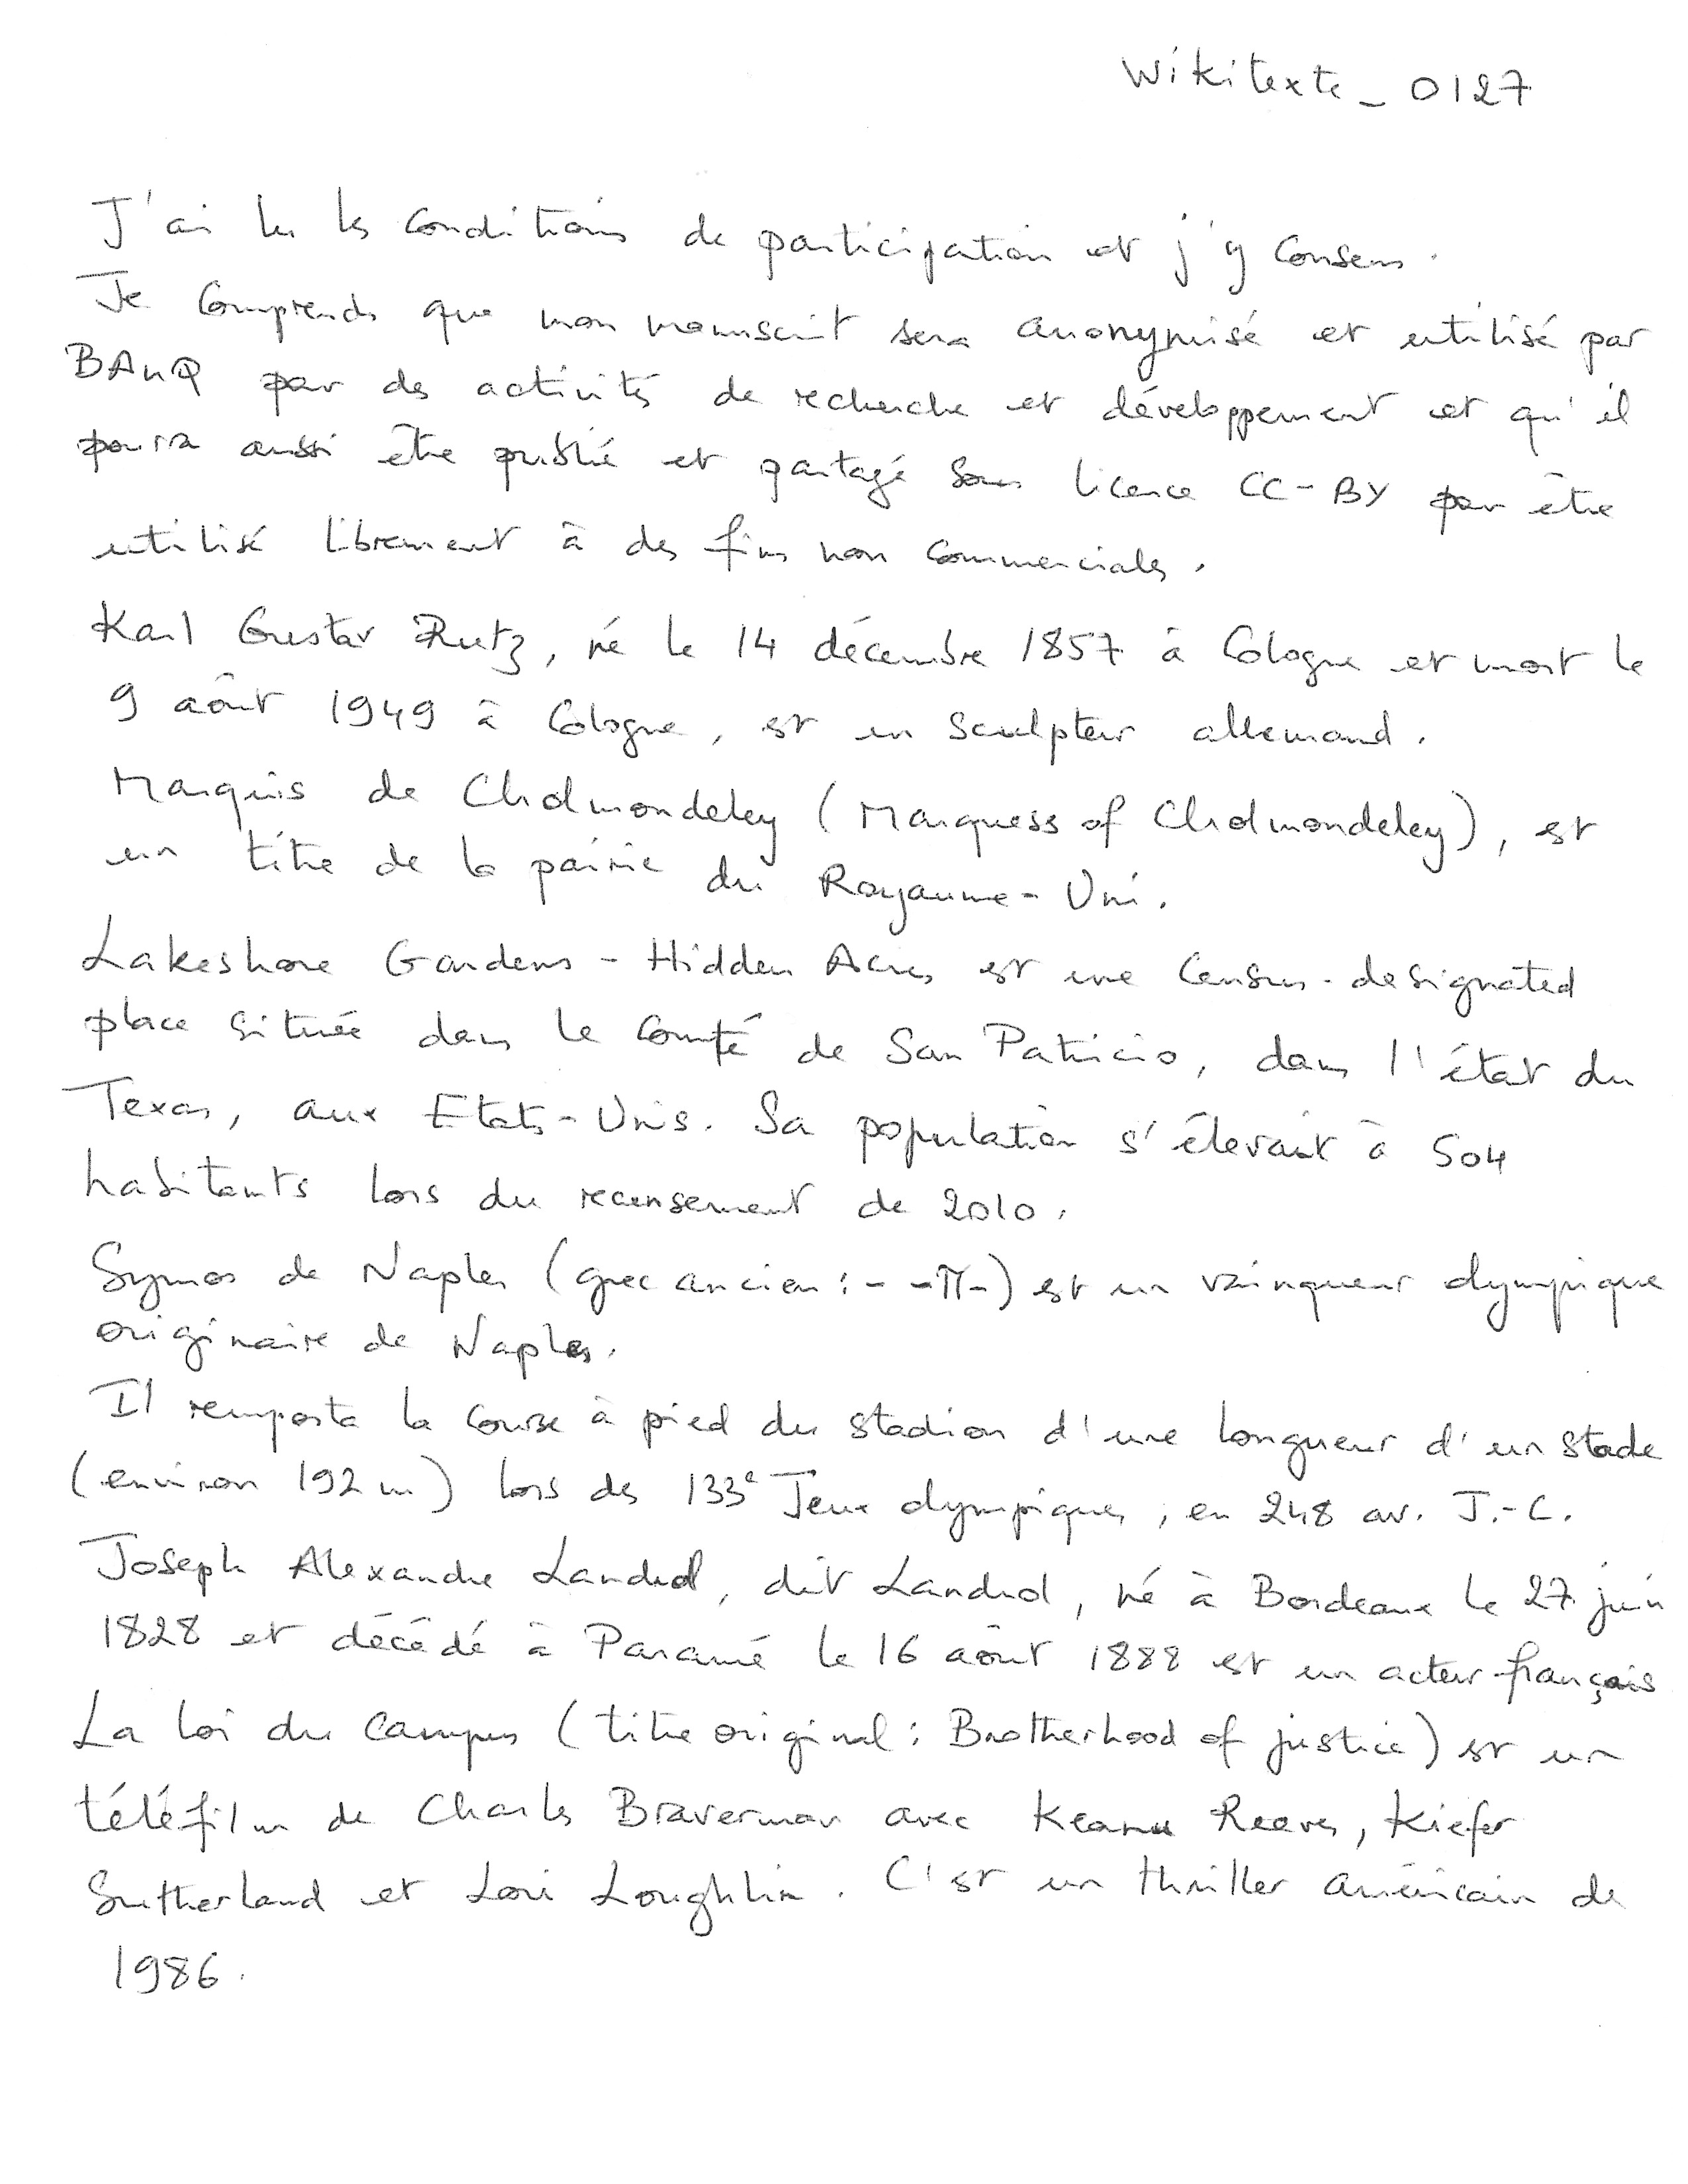 Wikitexte_0127
J'ai lu les conditions de participation et j'y consens.
Je comprends que mon manuscrit sera anonymisé et utilisé par
BAnQ pour des activités de recherche et développement et qu'il
pourra aussi être publié et partagé sous licence CC-BY pour être
utilisé librement à des fins non commerciales.
Karl Gustav Rutz, né le 14 décembre 1857 à Cologne et mort le
9 août 1949 à Cologne, est un sculpteur allemand.
Marquis de Cholmondeley (Marquess of Cholmondeley), est
un titre de la pairie du Royaume-Uni.
Lakeshore Gardens-Hidden Acres est une census-designated
place située dans le comté de San Patricio, dans l'état du
Texas, aux Etats-Unis. Sa population s'élevait à 504
habitants lors du recensement de 2010.
Symos de Naples (grec ancien : - -π-) est un vainqueur olympique
originaire de Naples.
Il remporta la course à pied du stadion d'une longueur d'un stade
(environ 192 m) lors des 133e Jeux olympiques, en 248 av. J.-C.
Joseph Alexandre Landrol, dit Landrol, né à Bordeaux le 27 juin
1828 et décédé à Paramé le 16 août 1888 est un acteur français
La loi du campus (titre original : Brotherhood of justice) est un
téléfilm de Charles Braverman avec Keanu Reeves, Kiefer
Sutherland et Lori Loughlin. C'est un thriller américain de
1986.